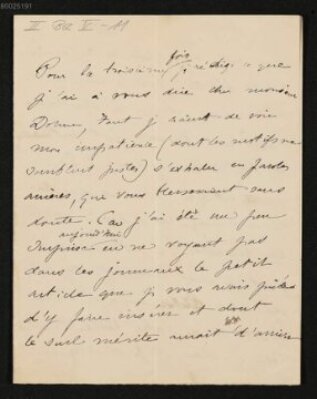 80025191
II Bc V - 11
Pour la troisième fois je rédige ce que
j'ai à vous dire cher monsieur
tant je crains de voir
mon impatience (dont les motifs me
semblent justes) s'exhaler en paroles
amères, que vous blesseraient sans
doute. Car j'ai été un peu
surprise aujourd'hui en ne voyant pas
dans les journaux le petit
article que je vous avais prié
d'y faire insérer et dont
le seul mérite aurait d'arriver